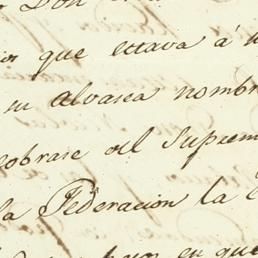 Don
que estava á
su alvasea nombr
cobrase del Suprem
la Federacion la
en que